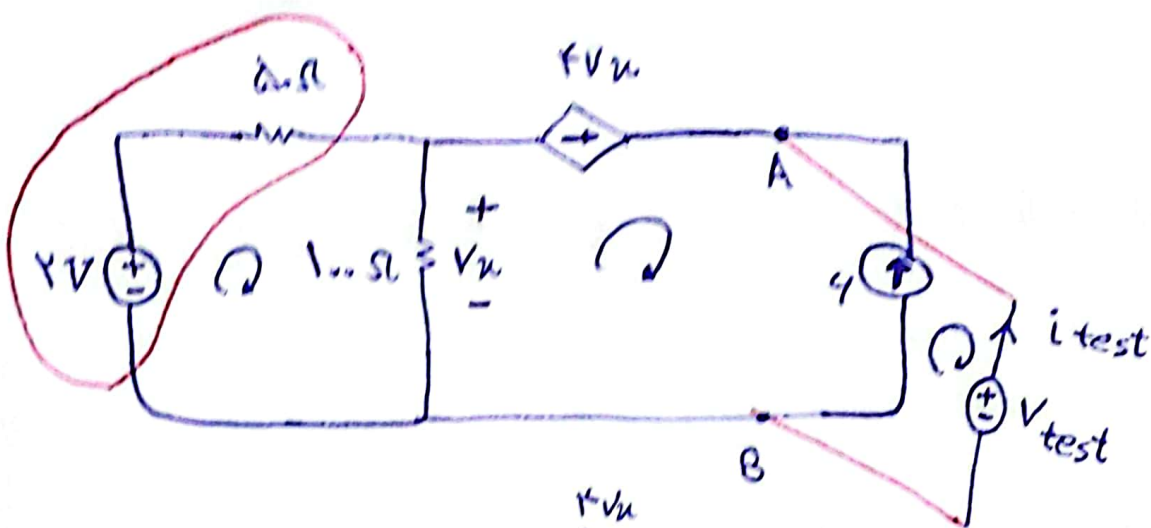 ۵۰Ω
۴Vx
A
۲V
+
-
۱۰۰Ω
+
Vx
-
۶
i test
+
-
V test
B
۴Vx